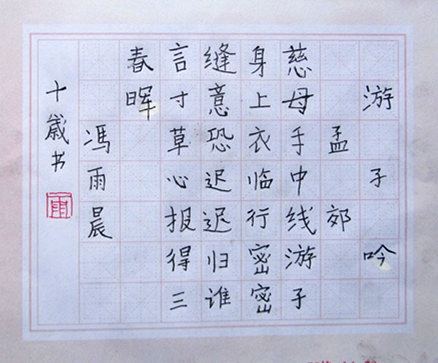 游子吟
孟郊
慈母手中线游子
身上衣临行密密
缝意恐迟迟归谁
言寸草心报得三
春晖
冯雨晨
十岁书
雨